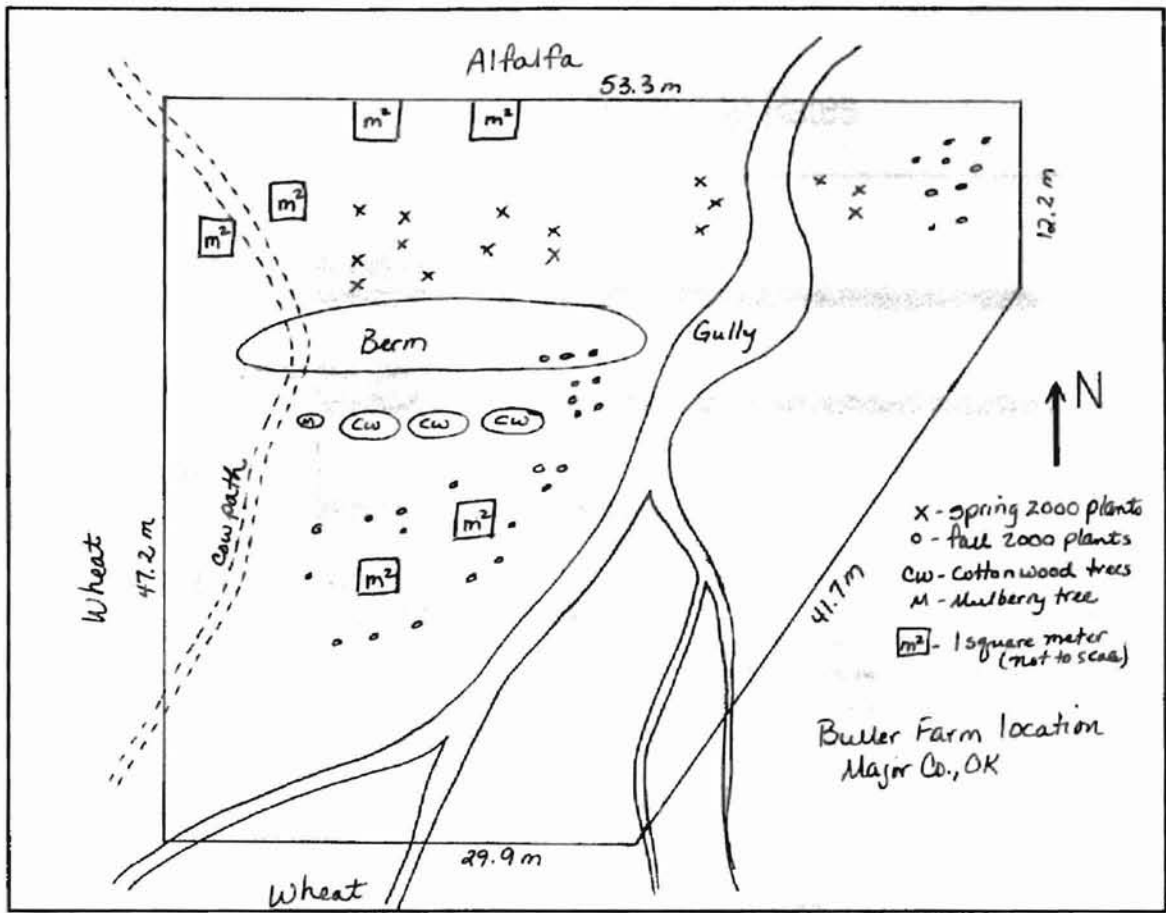 Alfalfa
53.3 m
m²
m²
m²
m²
12.2 m
Berm
Gully
N
M
CW
CW
CW
Cow path
m²
m²
Wheat
47.2 m
x - spring 2000 plants
o - fall 2000 plants
CW - Cottonwood trees
M - Mulberry tree
m² - 1 square meter
(not to scale)
41.7 m
Buller Farm location
Major Co., OK
29.9 m
Wheat